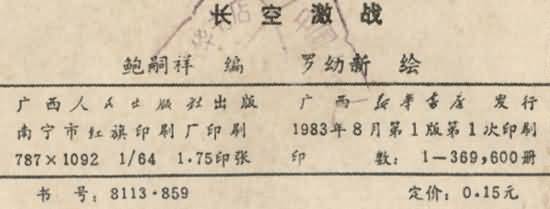 长空激战
鲍嗣祥 编 罗幼新 绘
广西人民出版社出版 广西新华书店发行
南宁市红旗印刷厂印刷 1983年8月第1版第1次印刷
787×1092 1/64 1.75印张 印 数：1—369,600册
书 号：8113·859 定价：0.15元